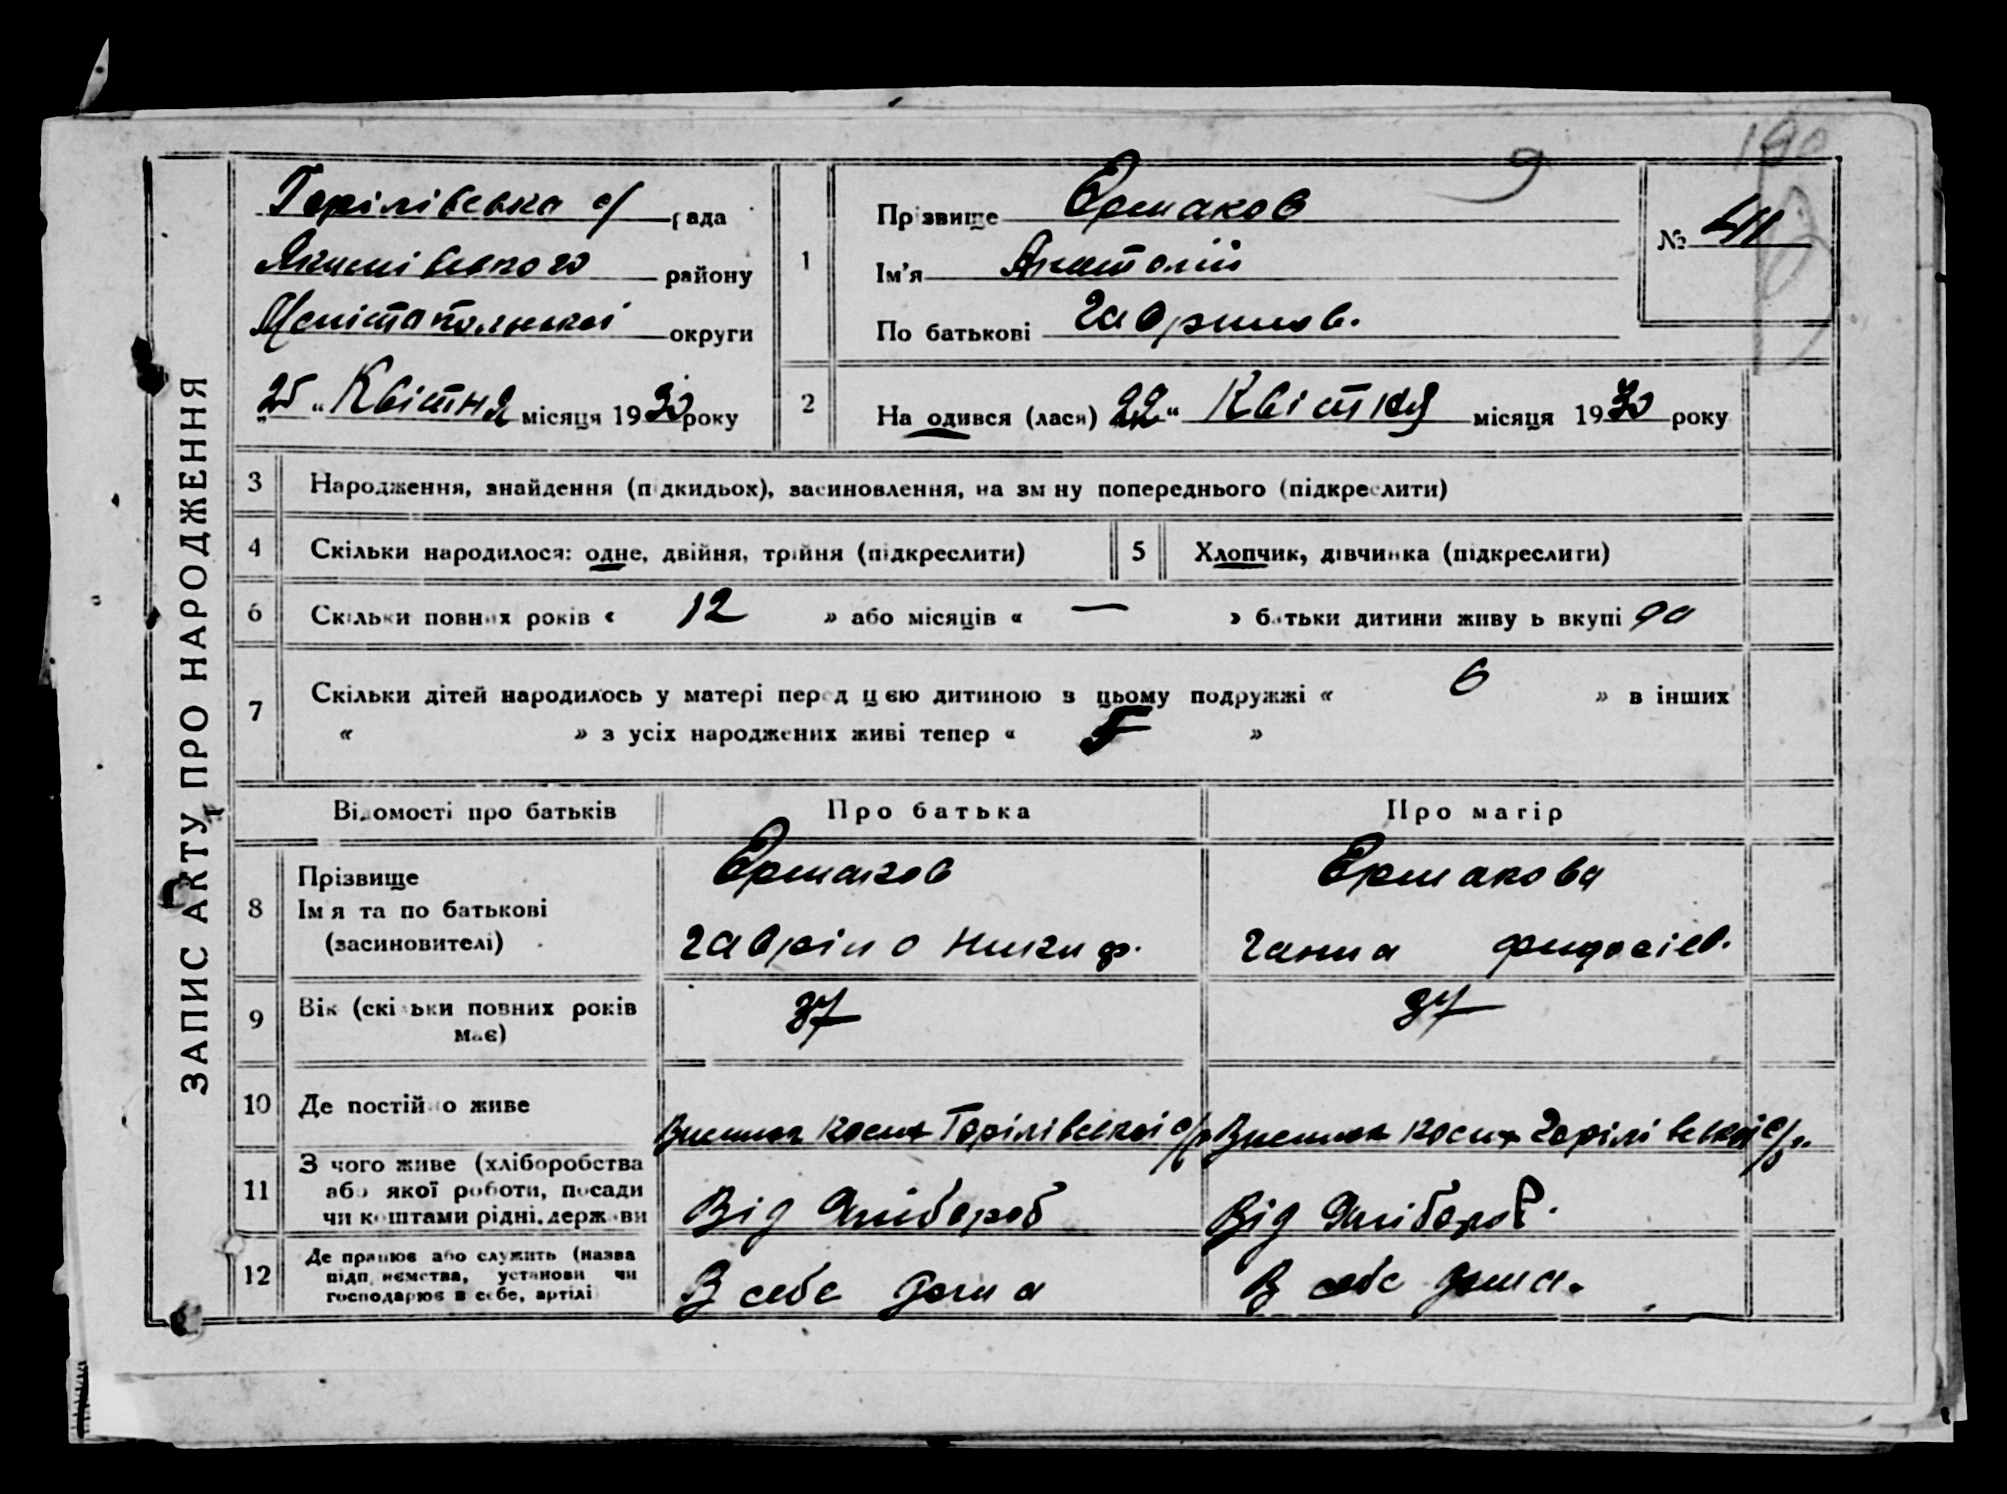 ЗАПИС АКТУ ПРО НАРОДЖЕННЯ
190
Горілівська с/ рада
Якимівського району
Мелітопольської округи
„25“ Квітня місяця 1930 року
1
Прізвище Єрмаков
Ім'я Анатолій
По батькові Гаврилов.
№ 411
2
На одився (лася) 22“ Квітня місяця 1930 року
3
Народження, знайдення (підкидьох), засиновлення, на зміну попереднього (підкреслити)
4
Скільки народилося: одне, двійня, трійня (підкреслити)
5
Хлопчик, дівчинка (підкреслити)
6
Скільки повних років « 12 » або місяців « — » батьки дитини живуть вкупі да
7
Скільки дітей народилось у матері перед цією дитиною в цьому подружжі « 6 » в інших
« » з усіх народжених живі тепер « 5 »
Відомості про батьків
Про батька
Про матір
8
Прізвище
Ім'я та по батькові
(засиновителі)
Єрмаков
Гавріло Никиф.
Єрмакова
Ганна Федосіев.
9
Вік (скільки повних років
має)
37
37
10
Де постійно живе
Горілівської с/р
Горілівської с/р.
11
З чого живе (хліборобства
або якої роботи, посади
чи коштами рідні, держави
Від Хлібороб
Від Хлібороб.
12
Де працює або служить (назва
підприємства, установи чи
господарює в себе, артілі)
В себе дома
В себе дома.